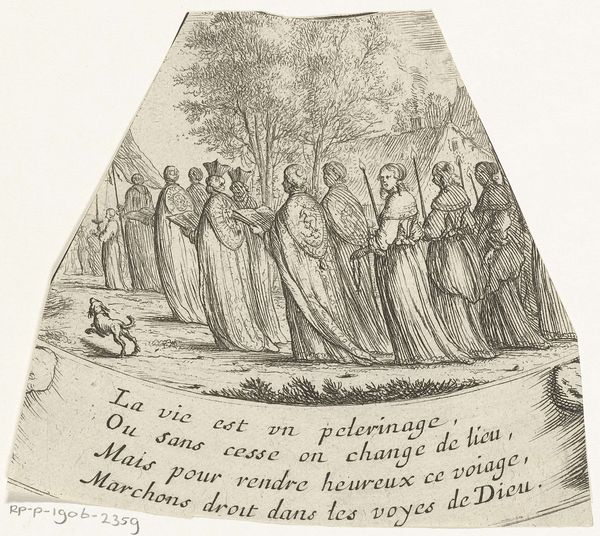 La vie est vn pelerinage,
Ou sans cesse on change de lieu,
Mais pour rendre heureux ce voiage,
Marchons droit dans les voyes de Dieu.
RP-P-1906-2359